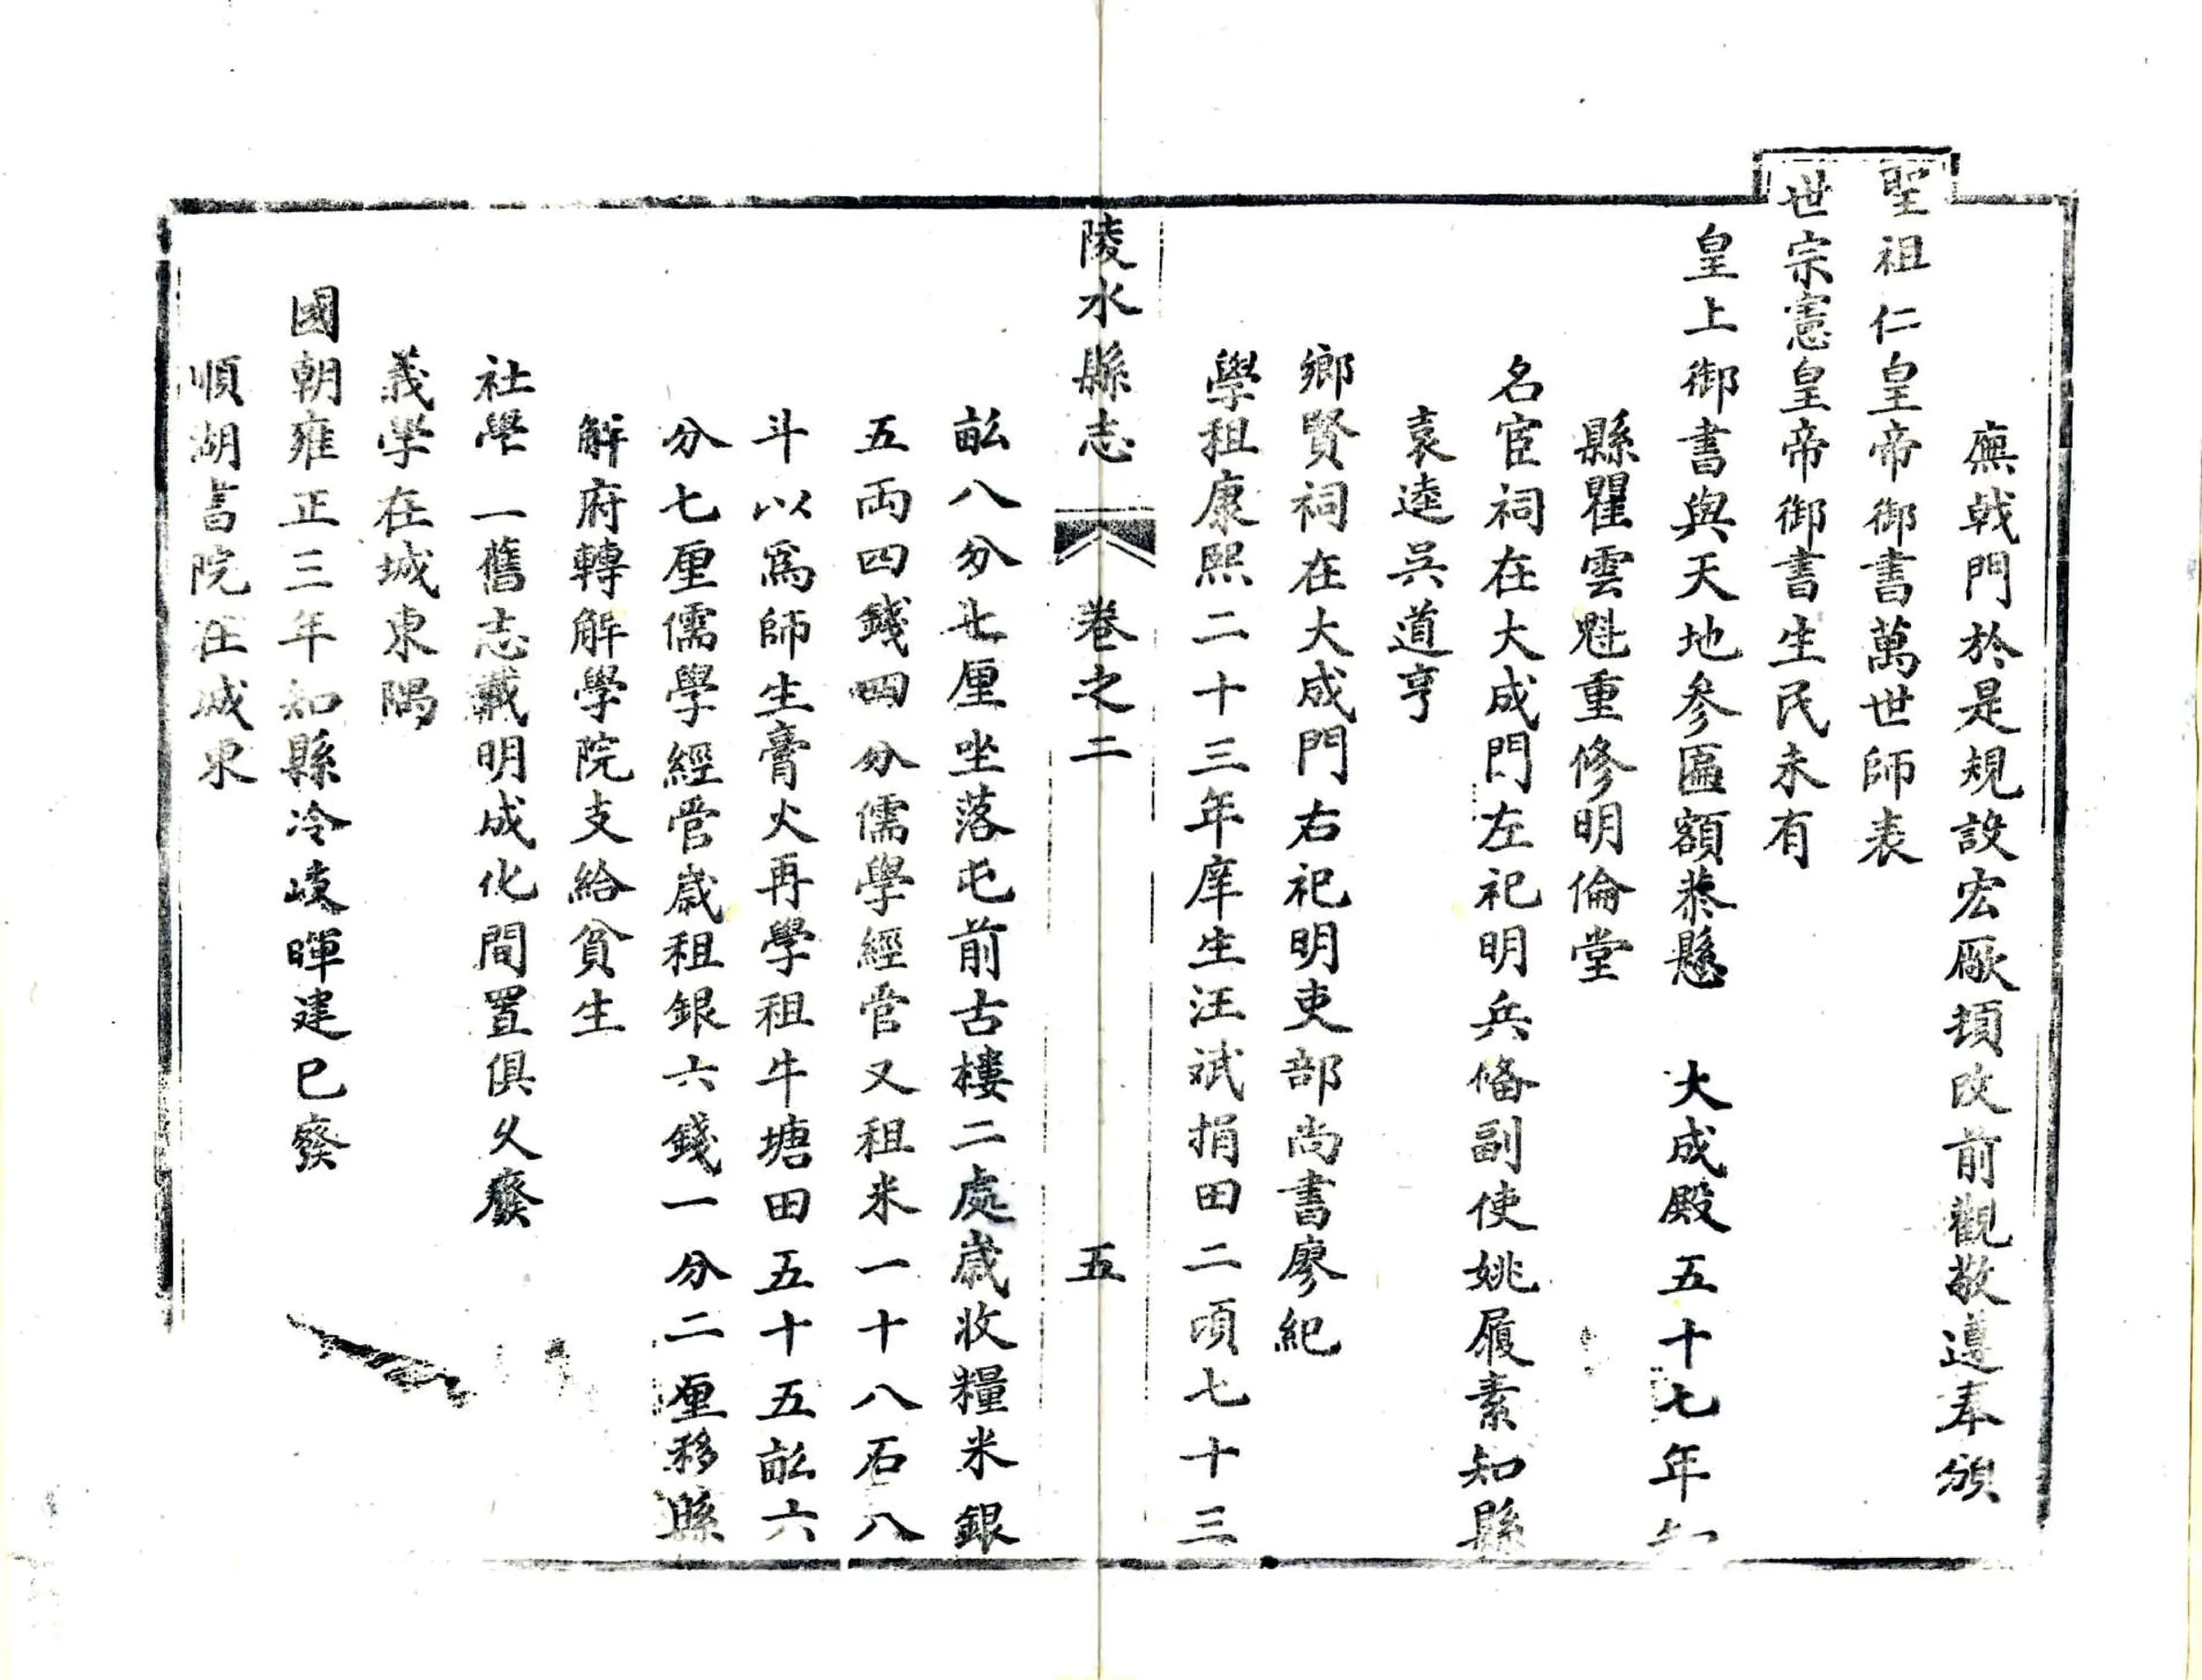 廡戟門於是規設宏厰頓改前觀敬遵奉頒
聖祖仁皇帝御書萬世師表
世宗憲皇帝御書生民未有
皇上御書與天地參匾額恭懸　大成殿五十七年知
縣瞿雲魁重修明倫堂
名宦祠在大成門左祀明兵備副使姚履素知縣
袁逵吳道亨
鄉賢祠在大成門右祀明吏部尚書廖紀
學租康熙二十三年庠生汪斌捐田二頃七十三
陵水縣志　卷之二　五
畝八分七厘坐落屯前古樓二處歲收糧米銀
五兩四錢四分儒學經管又租米一十八石八
斗以爲師生膏火再學租牛塘田五十五畝六
分七厘儒學經管歲租銀六錢一分二厘移縣
解府轉解學院支給貧生
社學一舊志載明成化間置俱久廢
義學在城東隅
國朝雍正三年知縣冷岐暉建已廢
順湖書院在城東